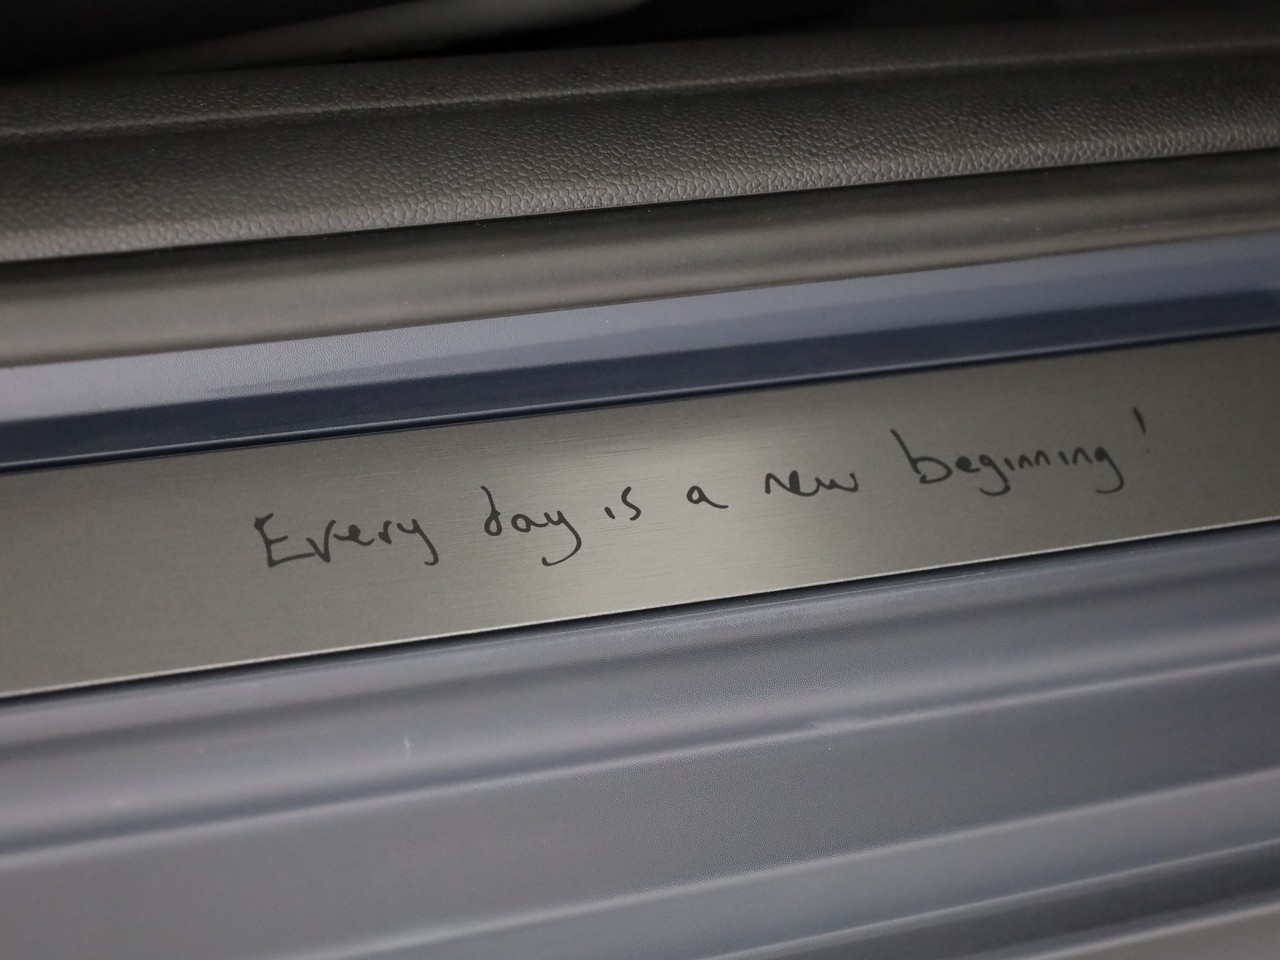 Every day is a new beginning!